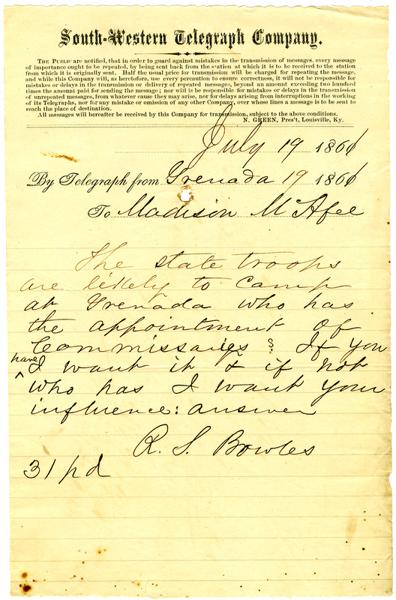 South-Western Telegraph Company.
THE PUBLIC are notified, that in order to guard against mistakes in the transmission of messages, every message
of importance ought to be repeated, by being sent back from the station at which it is to be received to the station
from which it is originally sent. Half the usual price for transmission will be charged for repeating the message,
and while this Company will, as heretofore, use every precaution to ensure correctness, it will not be responsible for
mistakes or delays in the transmission or delivery of repeated messages, beyond an amount exceeding two hundred
times the amount paid for sending the message; nor will it be responsible for mistakes or delays in the transmission
of unrepeated messages, from whatever cause they may arise, nor for delays arising from interruptions in the working
of its Telegraphs, nor for any mistake or omission of any other Company, over whose lines a message is to be sent to
reach the place of destination.
All messages will hereafter be received by this Company for transmission, subject to the above conditions.
N. GREEN, Pres't, Louisville, Ky.
July 19 1861
By Telegraph from Grenada 19 1861
To Madison McAfee
The state troops
are likely to camp
at Grenada who has
the appointment of
Commissaries? If you
have
^ I want it & if not
who has I want your
influence: answer
R. S. Bowles
31 pd